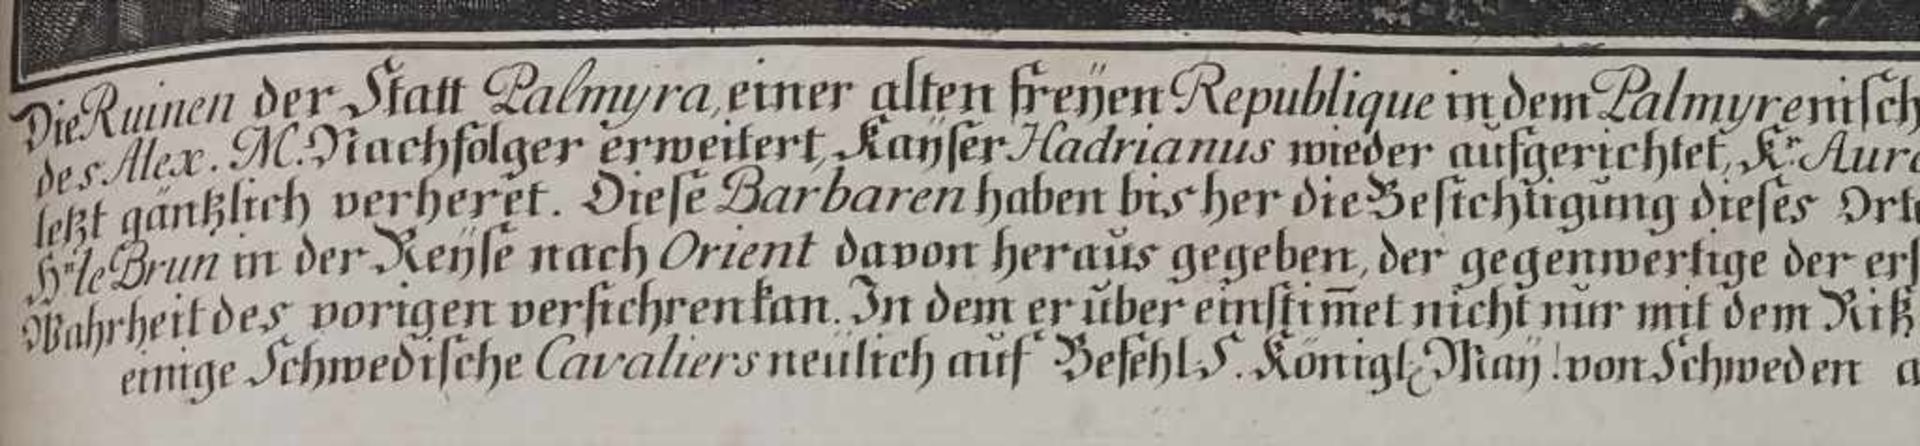 Die Ruinen der Statt Palmyra, einer alten freÿen Republique in dem Palmyrenisch
des Alex. M. Nachfolger erweitert, Kaÿser Hadrianus wieder aufgerichtet, Kr. Aure
letzt gäntzlich verheret. Diese Barbaren haben bis her die Besichtigung dieses Orte
Hr. le Brun in der Reÿse nach Orient davon heraus gegeben, der gegenwertige der ers
Wahrheit des vorigen versichren kan. In dem er über einstim̅et nicht nur mit dem Riß
einige Schwedische Cavaliers neülich auf Befehl S. Königl. Maÿ. von Schweden a